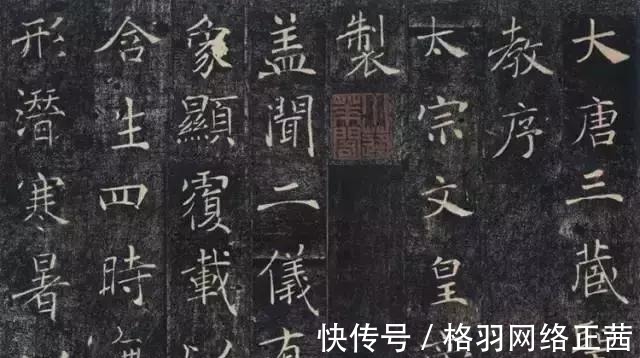 大唐三藏
教序
太宗文皇
製
盖聞二儀有
象顯覆載
含生四時
形潛寒暑
快传号 / 格羽网络正茜